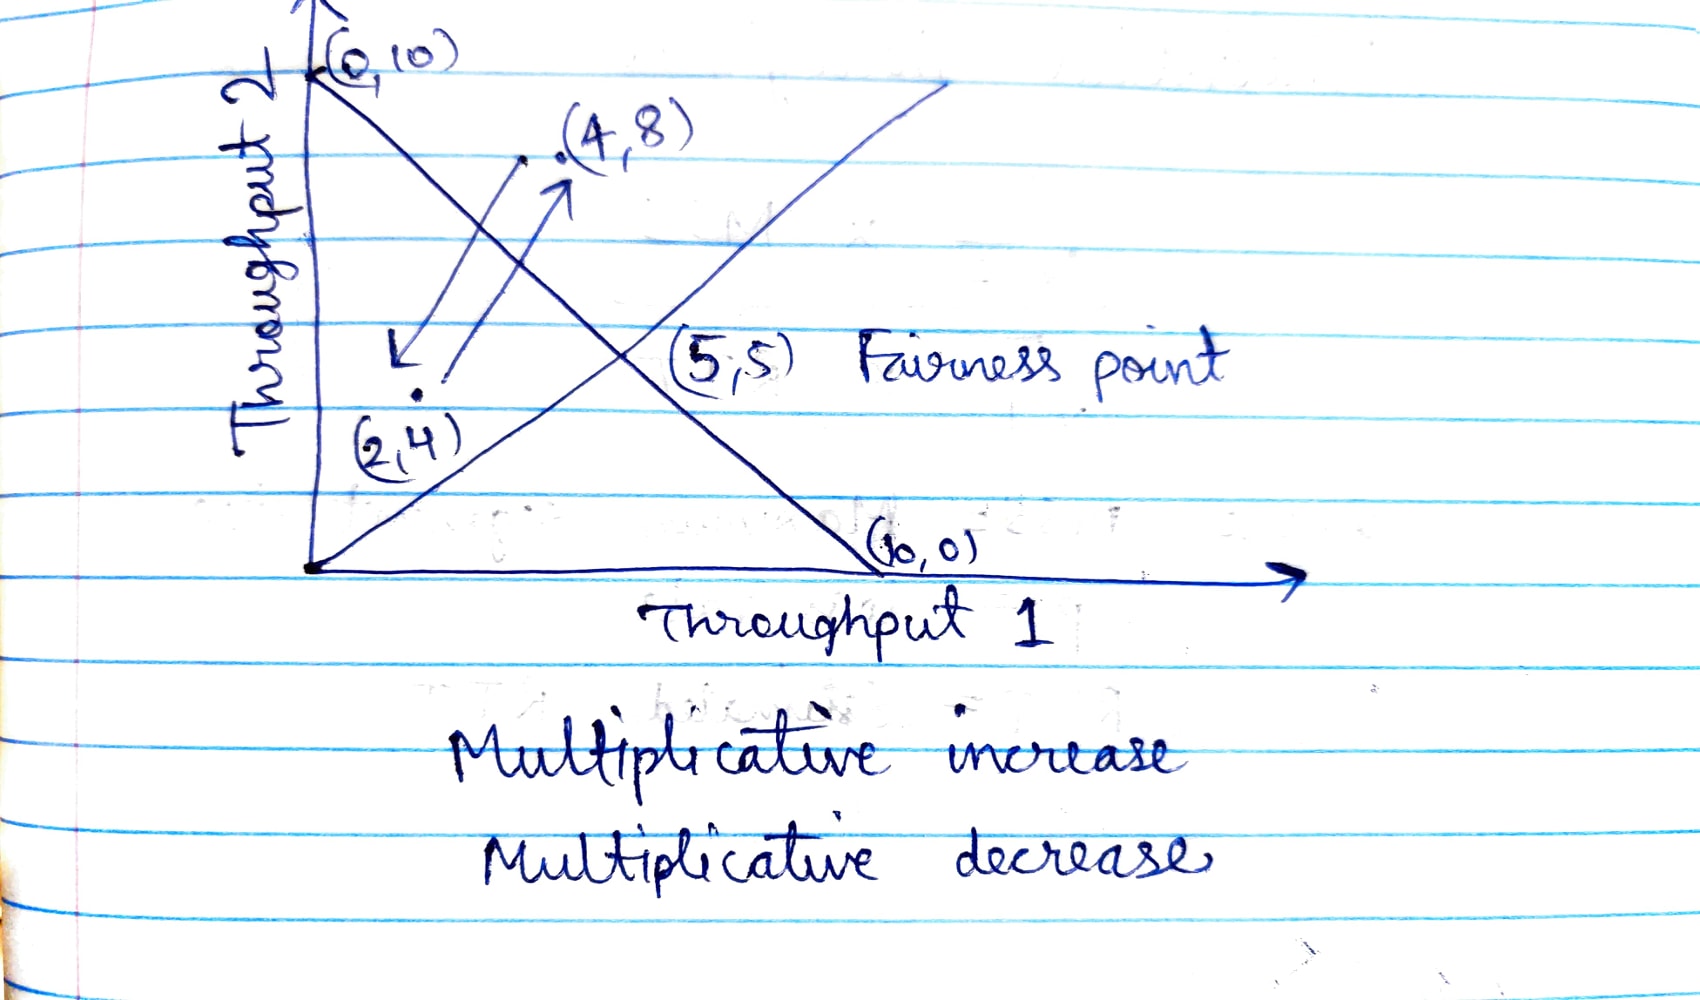 (0,10)
(4,8)
Throughput 2
(5,5) Fairness point
(2,4)
(10,0)
Throughput 1
Multiplicative increase
Multiplicative decrease